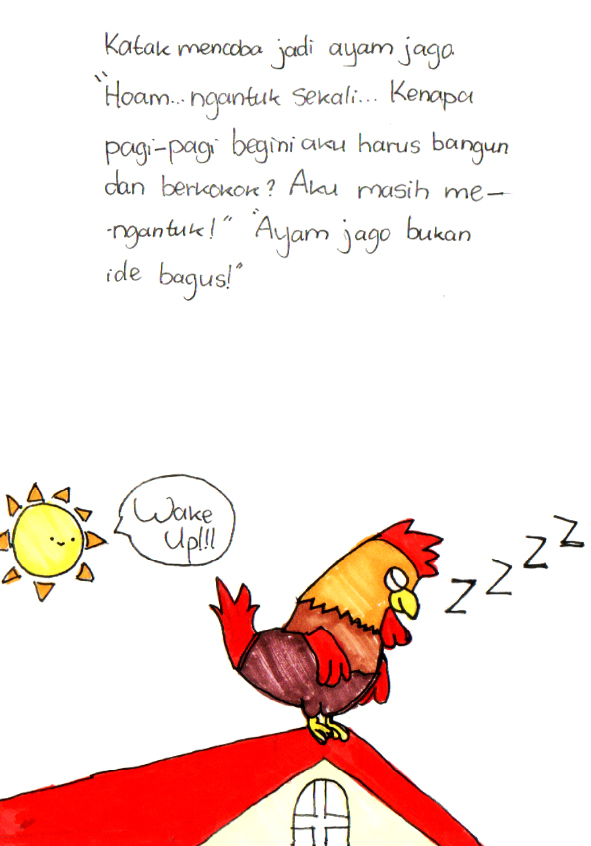 Katak mencoba jadi ayam jago
"Hoam... ngantuk sekali... Kenapa
pagi-pagi begini aku harus bangun
dan berkokok? Aku masih me-
-ngantuk!" "Ayam jago bukan
ide bagus!"
Wake
Up!!!
Z Z Z Z